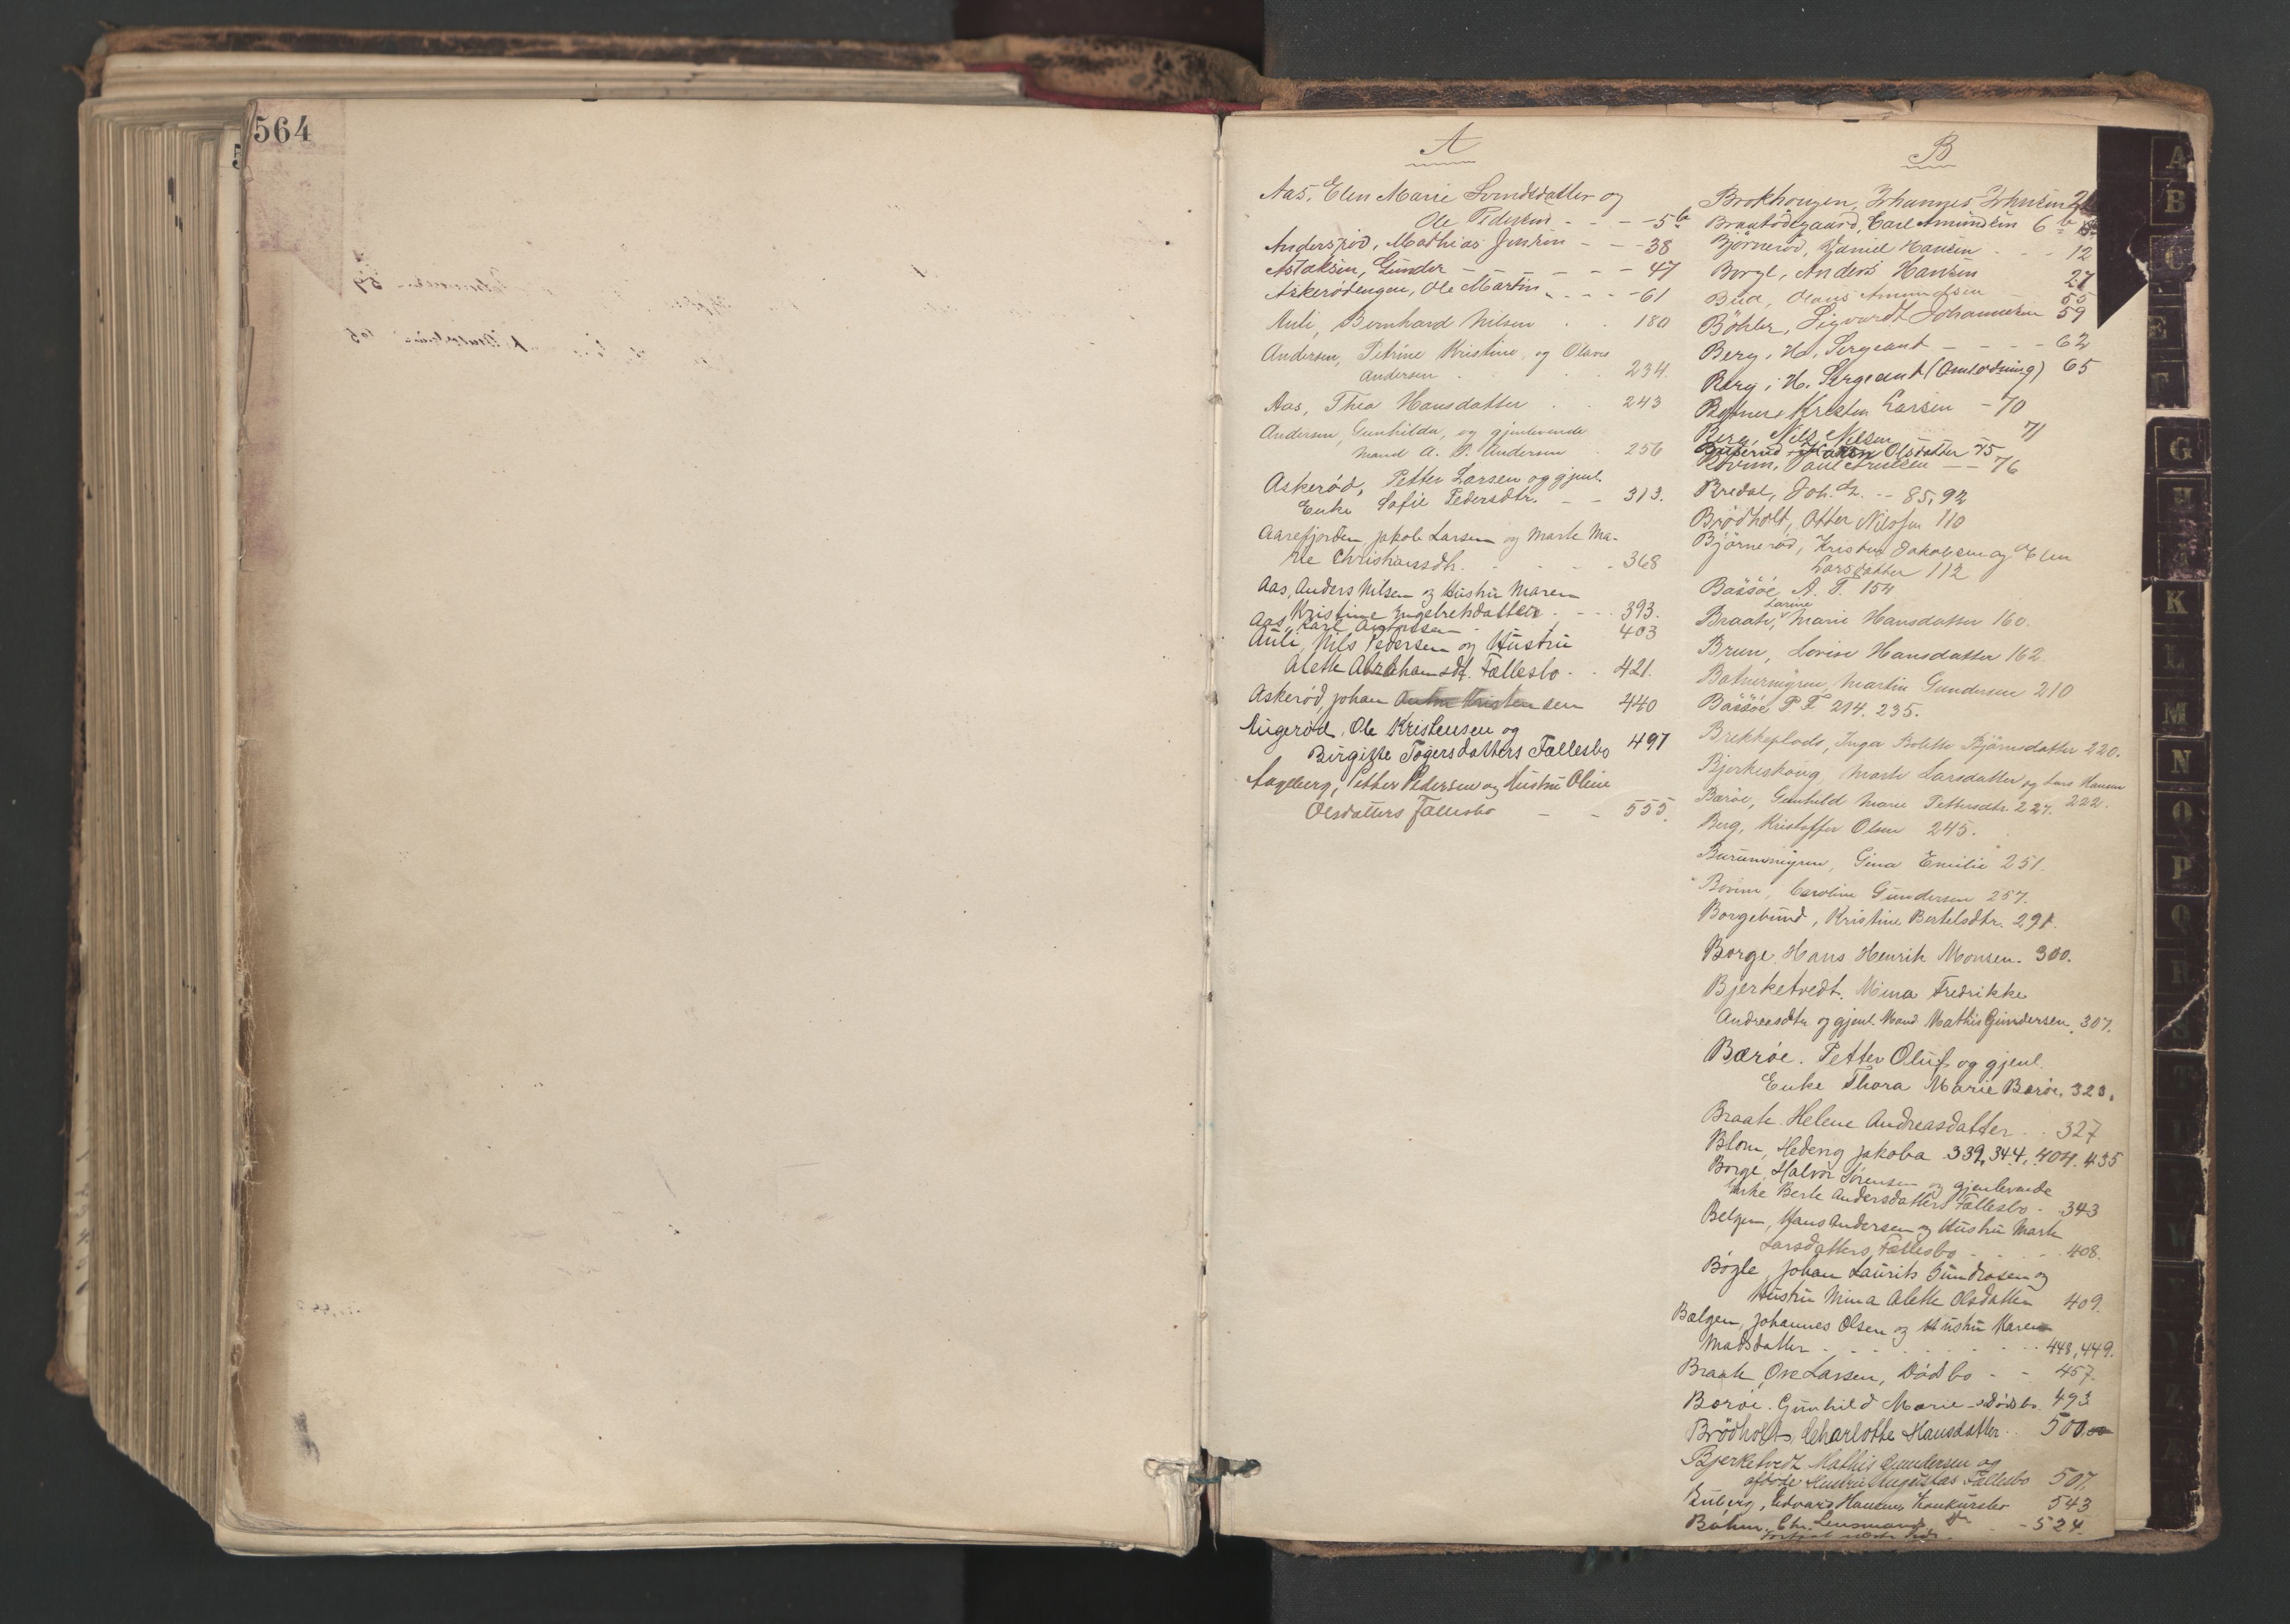 564
A
Aas, Elen Marie Svendsdatter og
Ole Pedersens - - - 5 b
Andersrød, Mathias Jensen - - 38
Aslaksen, Gunder - - - - 47
Askerødengen, Ole Martin - - - 61
Auli, Bernhard Nilsen . . 180
Andersen, Petrine Kristine, og Olaves
Andersen . . . 234.
Aas, Thea Hansdatter . . 243
Andersen, Gunhilda, og gjenlevende
mand A. P. Andersen . 256
Askerød, Petter Larsen og gjenl.
Enke Sofie Pedersdtr. - - 313.
Aarefjorden Jakob Larsen og Marte Ma-
rie Christiansdtr. . . . 368
Aas, Anders Nilsen og Hustru Maren
Kristine Engelretsdatter . - - 393.
Aas, Karl 403
Auli, Nils Pedersen og Hustru
Alette Abrahamsdt. Fællesbo . . 421.
Askerød, Johan sen 440
Augerød, Ole Kristensen og
Birgitte Togersdatters Fællesbo 497
Aageberg, Petter Pedersen og Hustru Oline
Olsdatters Fællesbo - - 555.
B
Brokhougen, Johannes Johnsen
Braatødegaard, Carl Amundsen 6 b
Bjørnerød, Daniel Hansen - - - 12
Borge, Anders Hansen 27
Bua, Olaus Amundsen 55
Bøhler, Sigvardt Johannesen 59
Berg, H. Sergeant - - - - 62
Berg, H. Sergeant (Omlodning) 65
Kristen Larsen - 70
Berg, Nils Nilsen 71
Buserud Karen Olsdatter 75
Bovim, Paul - - 76
Bredal, Joh. L. - - 85, 92
Brødholt, Otter Nilssen 110
Bjørnerød, Kristen Jakobsen og Elen
Larsdatter 112
Bassøe, A. T. 154
Larine
Braate, Marie Hansdatter 160.
Brun, Lovise Hansdatter 162.
Botnermyren, Martin Gundersen 210
Bassøe P. F. 214. 235.
Brekkeplads, Inga Bolette Bjørnsdatter 220.
Bjerkeskoug, Marte Larsdatter og Lars Hansen
222.
Barøe, Gunhild Marie Pettersdtr. 227.
Berg, Kristoffer Olsen 245.
Burummyren, Gina Emilie 251.
Bovim, Caroline Gundersen 257.
Borgebund, Kristine Bertelsdtr. 291.
Borge, Hans Henrik Monsen. 300.
Bjerketvedt. Mina Fredrikke
Andreasdtr og gjenl. Mand Mathis Gundersen. 307.
Barøe. Petter Oluf og gjenl.
Enke Thora Marie Barøe. 323.
Braate. Helene Andreasdatter . . 327
Blom, Hedevig Jakoba 339, 344, 404. 435
Borge, Halvor Sørensen og gjenlevende
Enke Berte Andersdatters Fællesbo - 343
Belgen, Hans Andersen og Hustru Marte
Larsdatters Fællesbo - . . - 408.
Bøgle, Johan Laurits Gundrosen og
Hustru Mina Alette Olsdatter 409.
Bælgen, Johannes Olsen og Hustru Karen
Madsdatter . . . . . . 448, 449.
Braate, Ove Larsen, Dødsbo - - 457.
Barøe. Gunhild Marie - Dødsbo. 493
Brødholt, Charlotte Hansdatter . . 500
Bjerketvedt Mathis Gundersen og
afdøde Hustru Augustas Fællesbo 507.
Buberg, Edvard Hansens Konkursbo 543
Bøhm, Chr. Lensmands - 524.